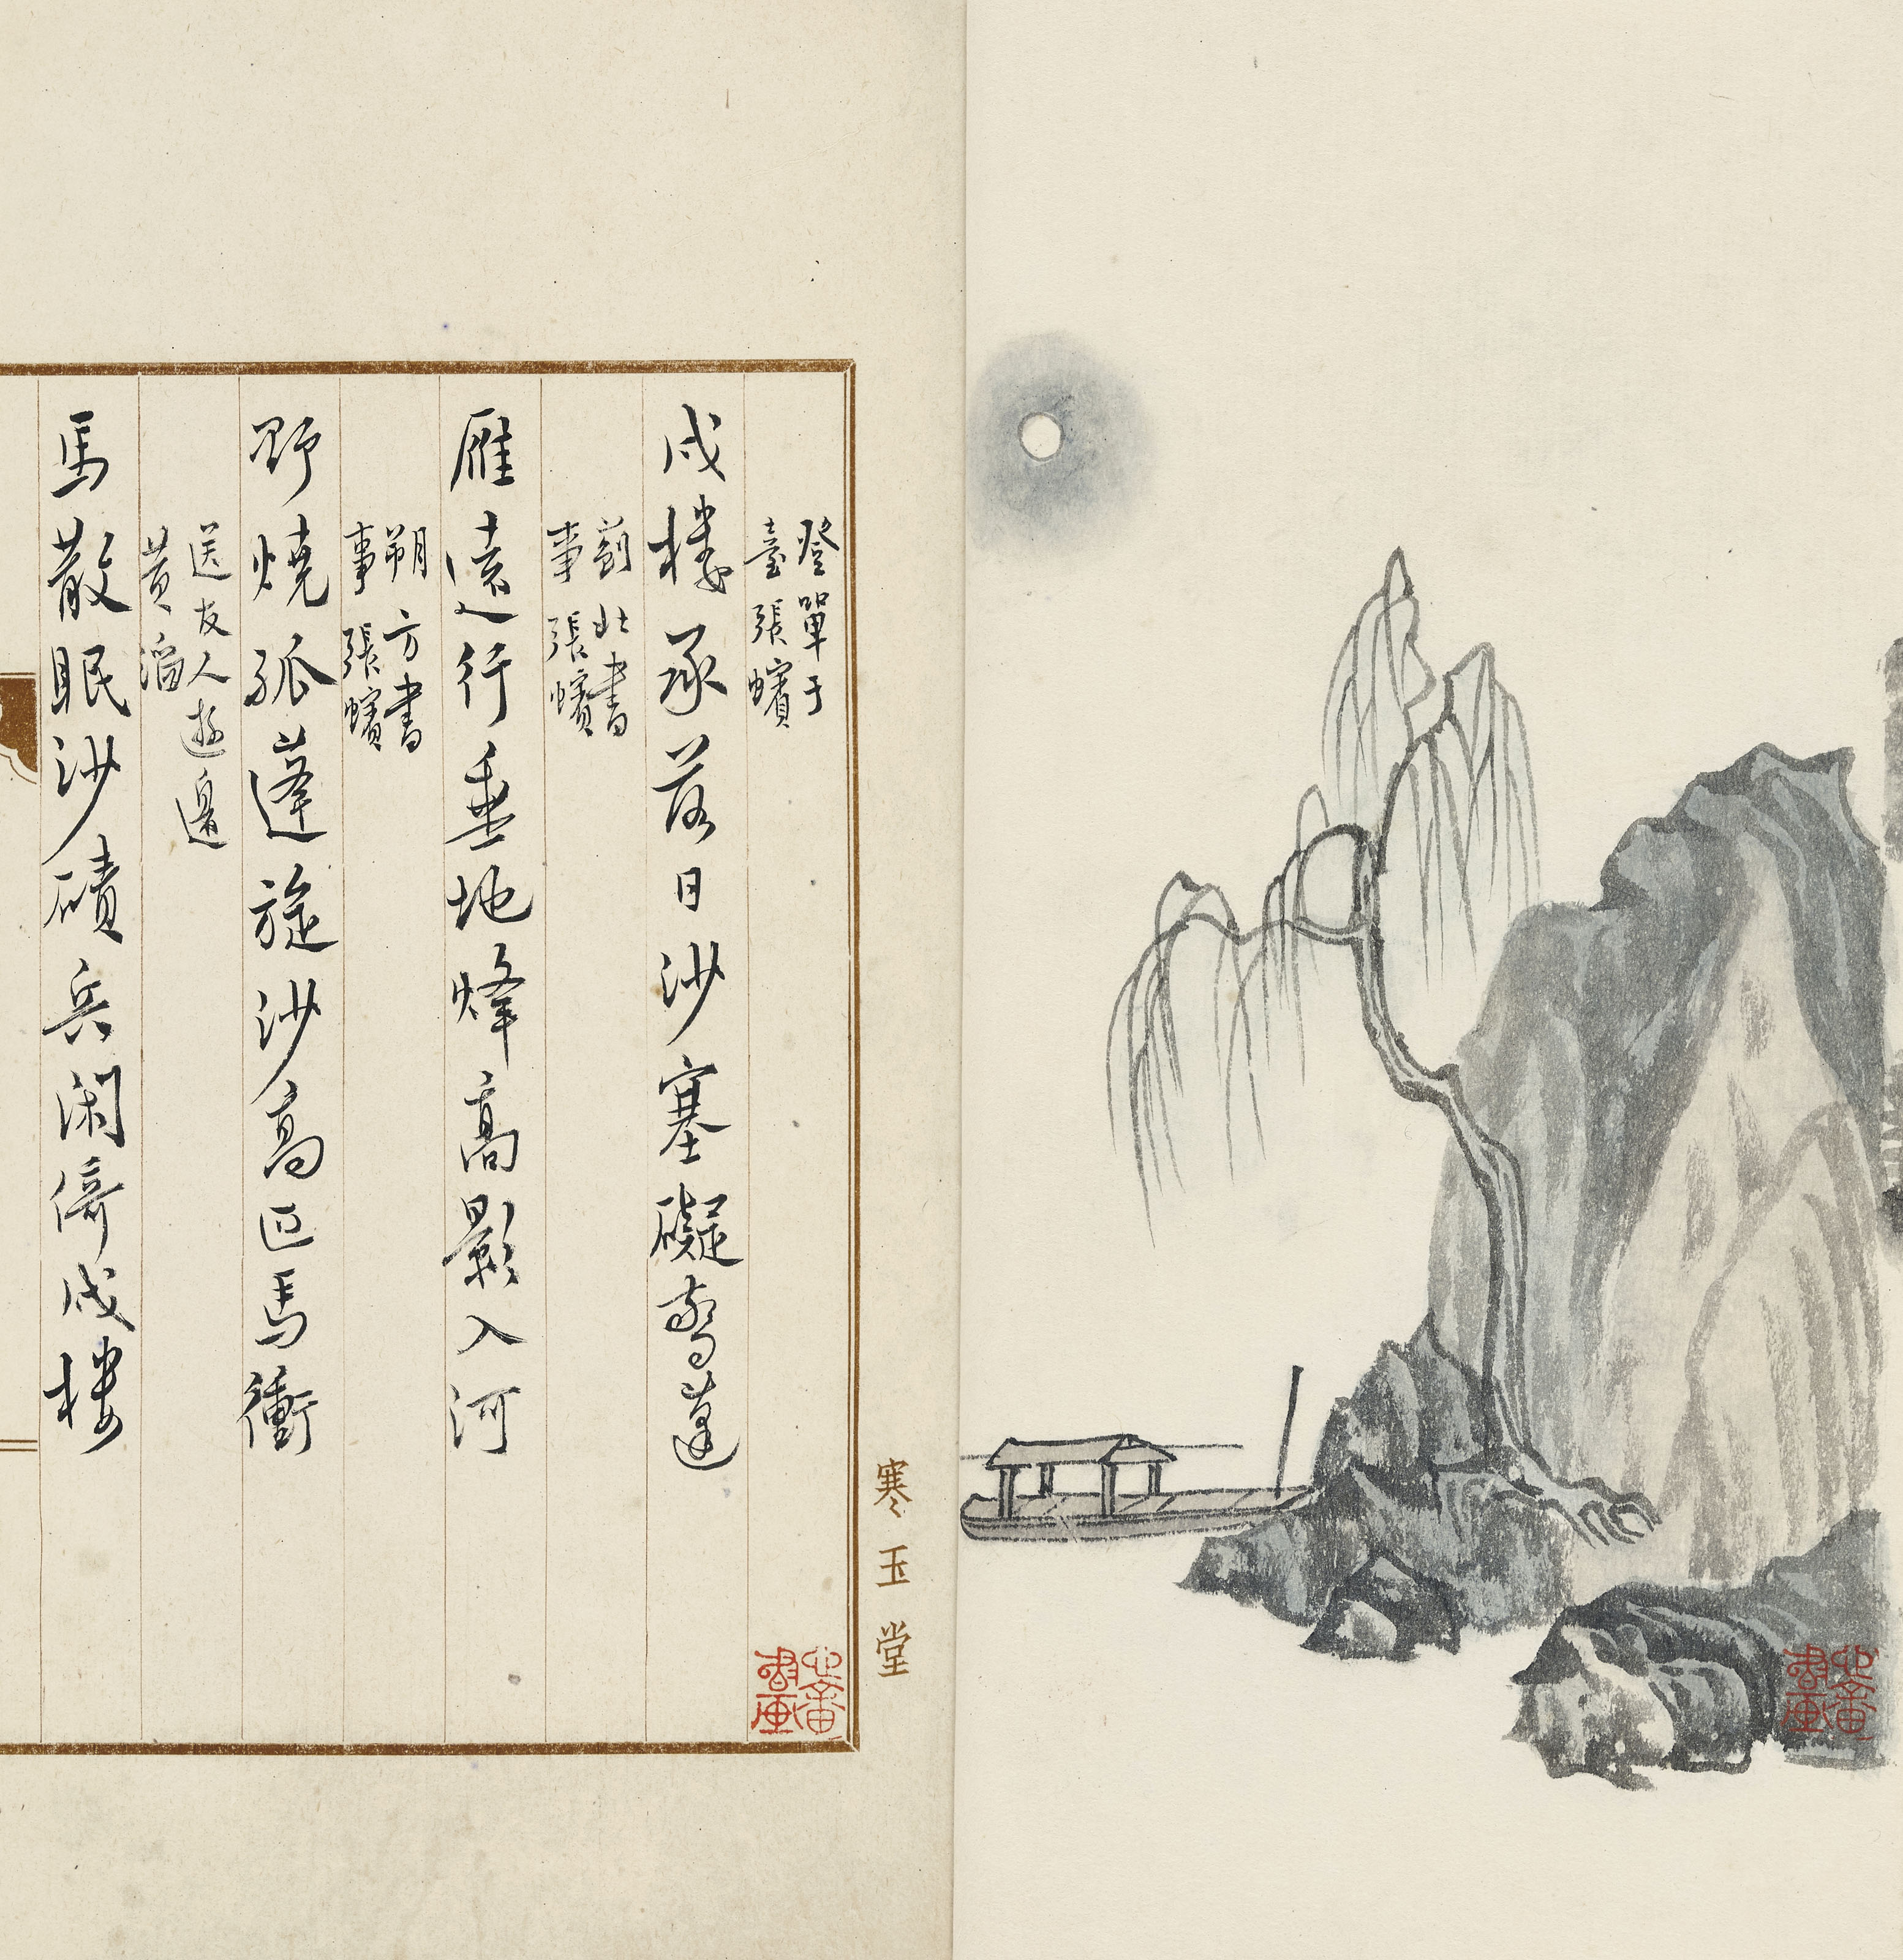 心畬書畫
寒玉堂
登單于
臺 張蠙
戍樓承落日沙塞礙驚蓬
薊北書
事 張蠙
雁遠行垂地烽高影入河
朔方書
事 張蠙
野燒孤蓬旋沙高匹馬衝
送友人遊邊
黃滔
馬散眠沙磧兵閑倚戍樓
心畬書畫